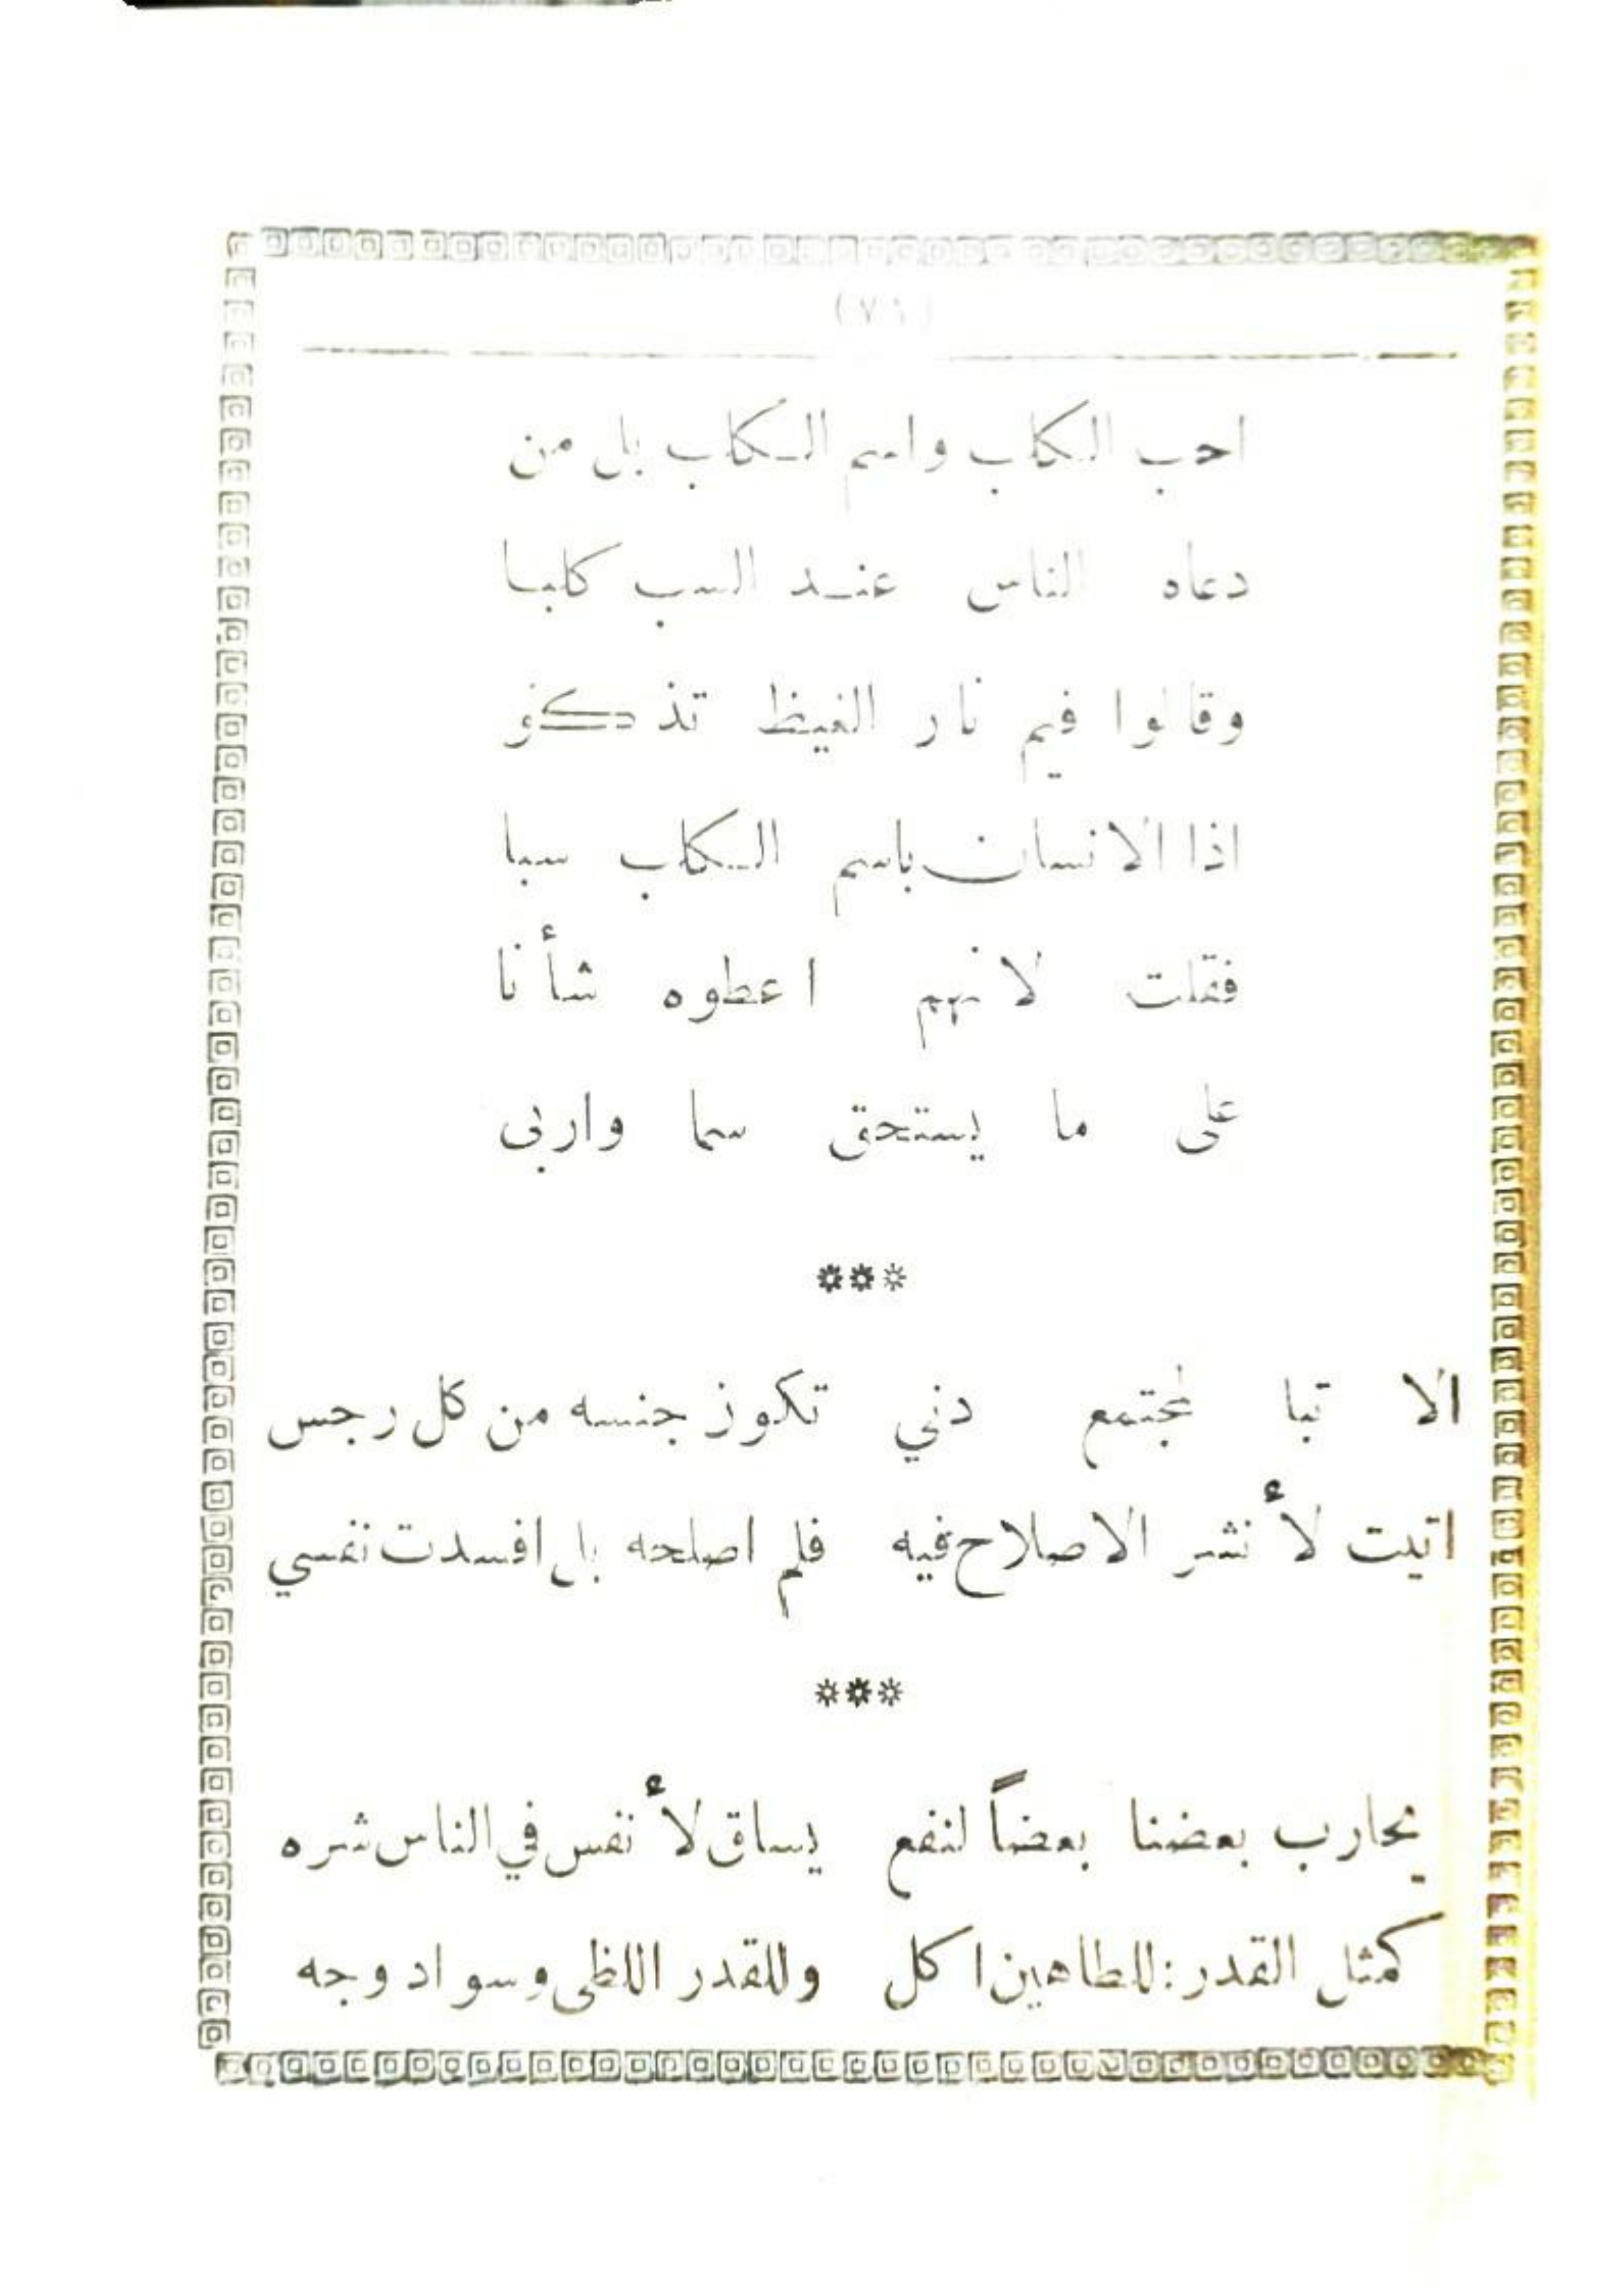 (٧١)
احب الكلب واسم الكلب بل من
دعاه الناس عند السب كلبا
وقالوا فيم نار الغيظ تذكو
اذا الانسان باسم الكلب سبا
فقلت لانهم اعطوه شأنا
على ما يستحق سما واربى
***
الا تبا لمجتمع دني تكون جنسه من كل رجس
اتيت لأنشر الاصلاح فيه فلم اصلحه بل افسدت نفسي
***
يحارب بعضنا بعضاً لنفع يساق لأنفس في الناس شره
كمثل القدر: للطاهين اكل وللقدر اللظى وسواد وجه